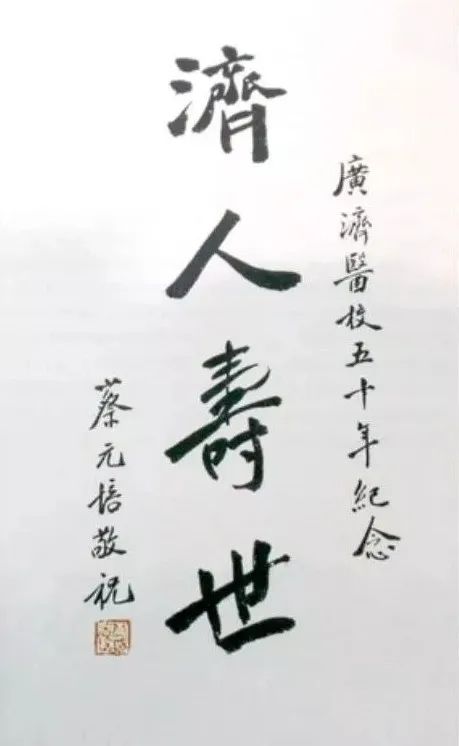 廣濟醫校五十年紀念
濟人壽世
蔡元培敬祝